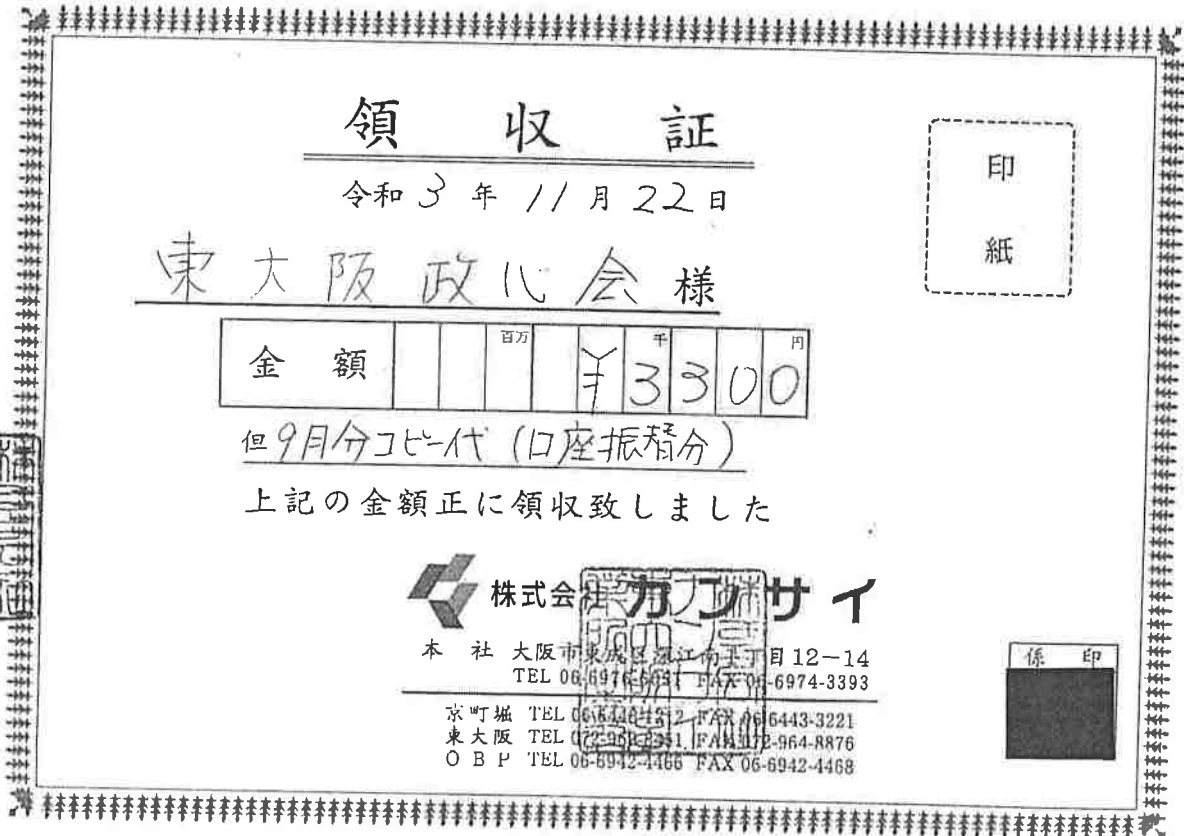 領収証
印紙
令和3年11月22日
東大阪政心会様
金額 百万 千 円 ¥3300
但9月分コピー代(口座振替分)
上記の金額正に領収致しました
株式会社カンサイ
本社 大阪市東成区深江南 丁目12-14
TEL 06-6976- FAX 06-6974-3393
京町堀 TEL 06- FAX 06-6443-3221
東大阪 TEL 072- FAX 072-964-8876
OBP TEL 06-6942-4466 FAX 06-6942-4468
係印